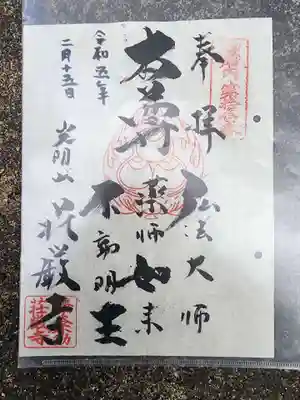 奉拝
弘法大師
本尊
薬師如来
不動明王
令和五年
二月十五日
光明山
荘厳寺